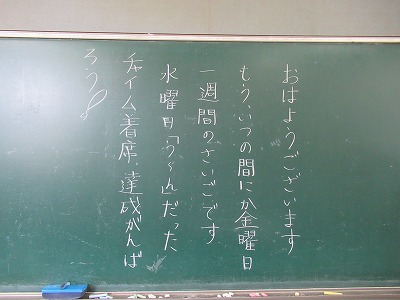 おはようございます
もういつの間にか金曜日
一週間のさいごです
水曜日「う〜ん」だった
チャイム着席、達成がんば
ろう♪